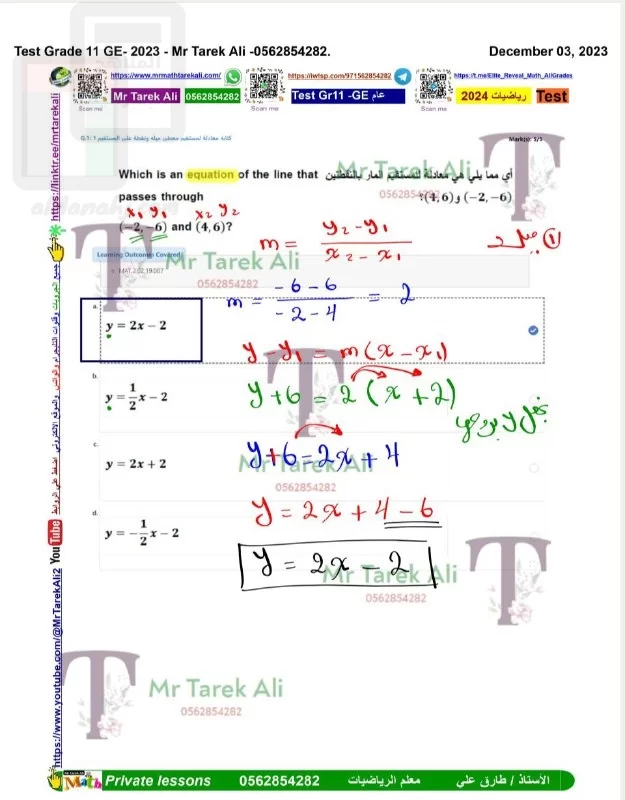 Test Grade 11 GE- 2023 - Mr Tarek Ali -0562854282. December 03, 2023
https://www.mrmathtarekali.com/ https://iwtsp.com/971562854282 https://t.me/Elite_Reveal_Math_AllGrades
Mr Tarek Ali 0562854282 Test Gr11 -GE عام رياضيات 2024 Test
Scan me Scan me Scan me
Q.1: 1 كتابة معادلة لمستقيم معطى ميله ونقطة على المستقيم Mark(s): 1/1
Which is an equation of the line that أي مما يلي هي معادلة للمستقيم المار بالنقطتين
passes through (−2, −6) و (4, 6)؟
x₁ y₁ x₂ y₂
(−2, −6) and (4, 6)?
m = y₂ - y₁ / x₂ - x₁
Learning Outcomes Covered
MAT.2.02.19.007
m = -6-6 / -2-4 = 2
a.
y = 2x − 2
y - y₁ = m(x - x₁)
b.
y = 1/2 x − 2
y+6 = 2(x+2)
c.
y = 2x + 2
y+6=2x+4
y = 2x+4-6
d.
y = −1/2 x − 2
y = 2x - 2
Mr Tarek Ali
0562854282
Mr Tarek Ali
0562854282
Mr Tarek Ali
0562854282
Mr Tarek Ali
0562854282
Mr Tarek Ali
0562854282
https://linktr.ee/mrtarekali
https://www.youtube.com/@MrTarekAli2 YouTube
Math Private lessons 0562854282 معلم الرياضيات الأستاذ / طارق علي